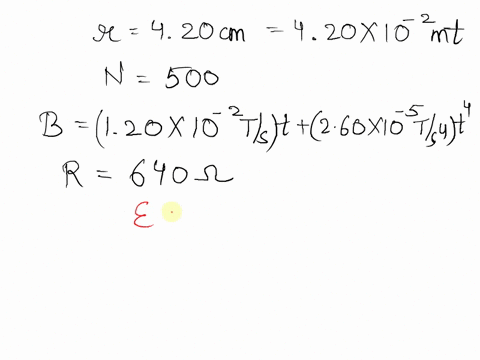 r = 4.20 cm = 4.20 X 10⁻² mt
N = 500
B = (1.20 X 10⁻² T/s) t + (2.60 X 10⁻⁵ T/s4) t⁴
R = 640 Ω
ε